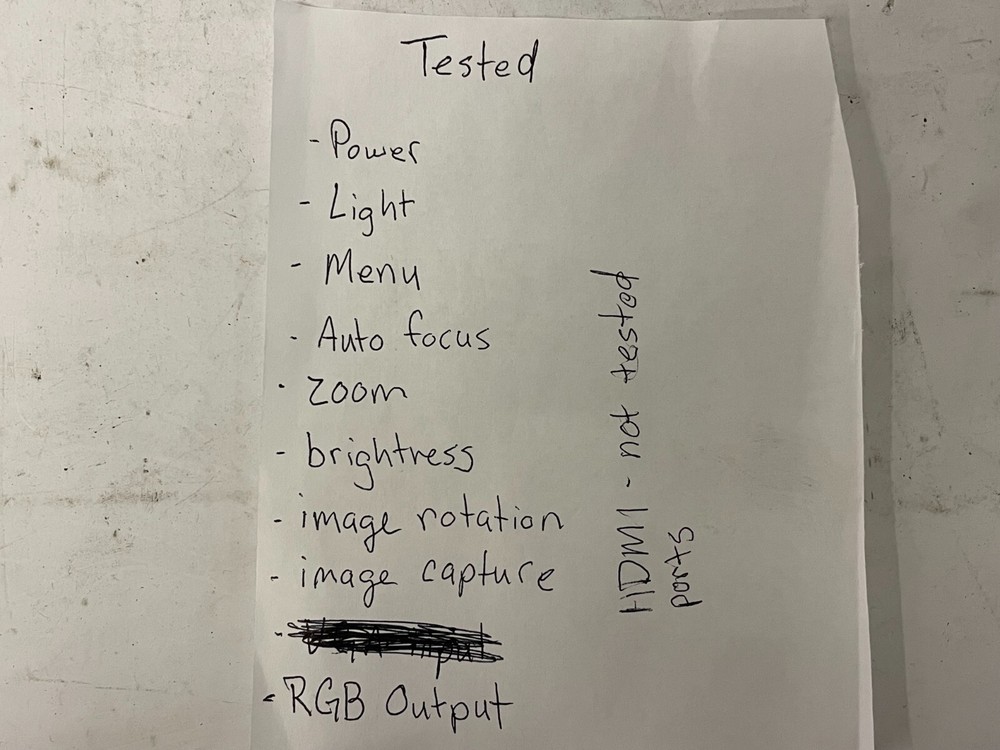 Tested
- Power
- Light
- Menu
- Auto focus
- zoom
- brightness
- image rotation
- image capture
- RGB Output
HDMI - not tested
ports